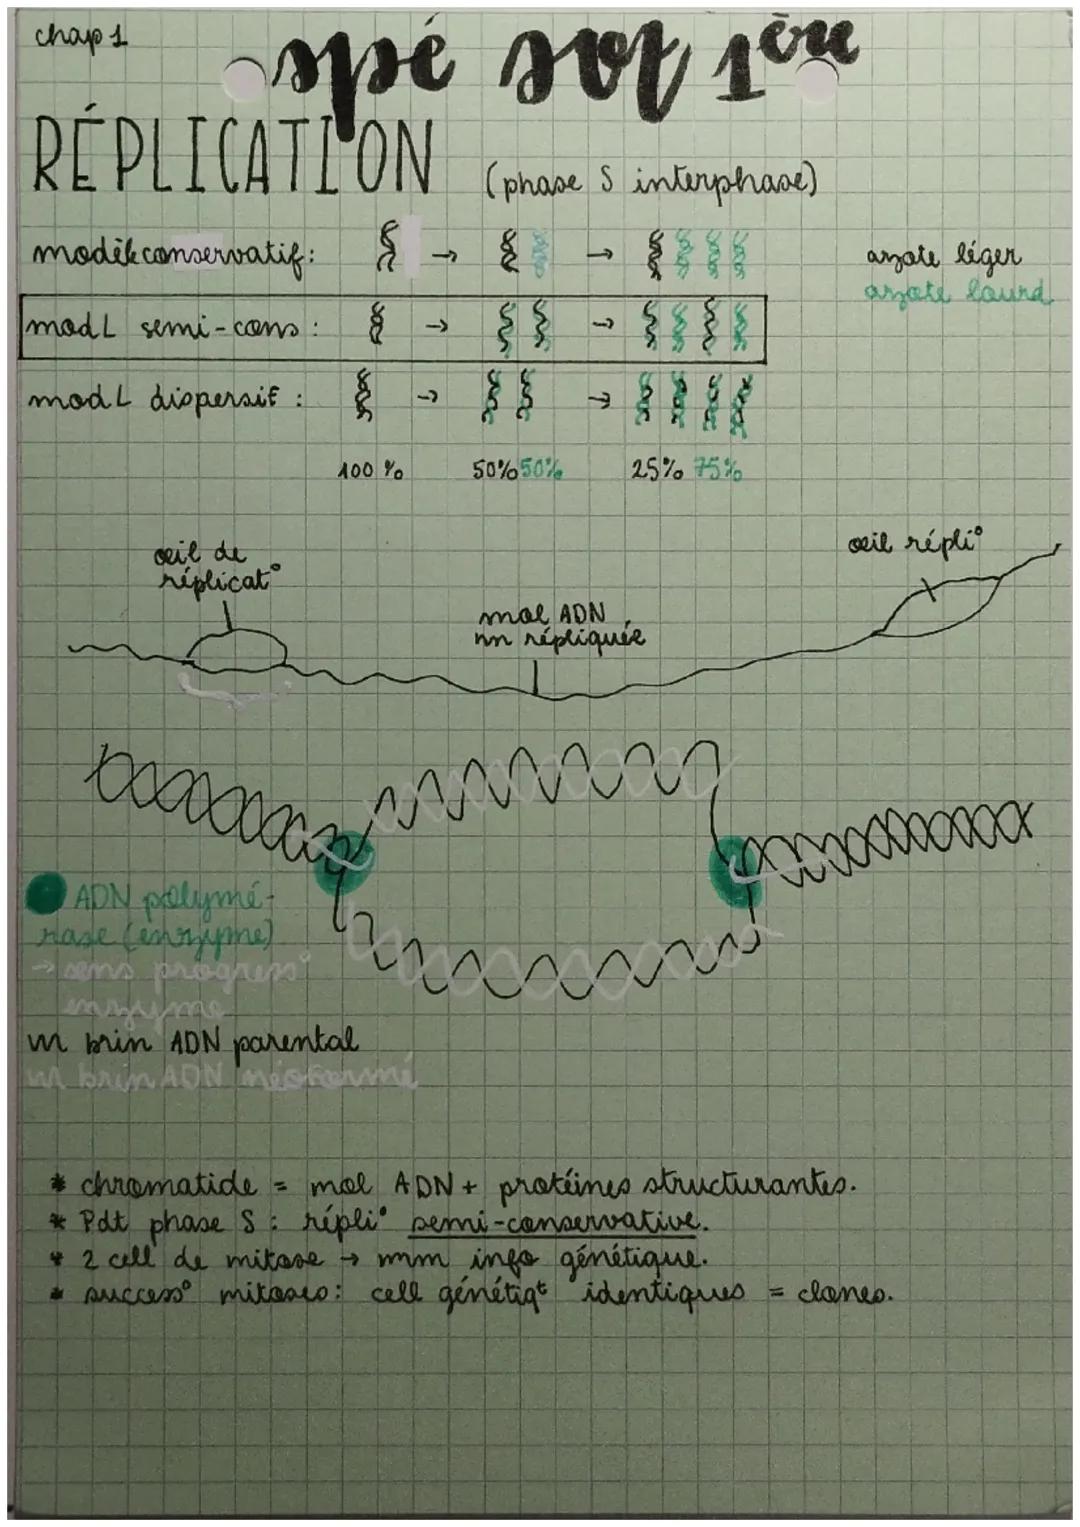 chap 1
spé svt 1ère
RÉPLICATION (phase S interphase)
modèle conservatif :
azote léger
azote lourd
modL semi-cons :
modL dispersif :
100 % 50% 50% 25% 75%
œil de
réplicat°
œil répli°
mol ADN
nn répliquée
ADN polymé-
rase (enzyme)
→ sens progress°
enzyme
brin ADN parental
brin ADN néoformé
* chromatide = mol ADN + protéines structurantes.
* Pdt phase S : répli° semi-conservative.
* 2 cell de mitose → mm info génétique.
* success° mitoses : cell génétiqt identiques = clones.